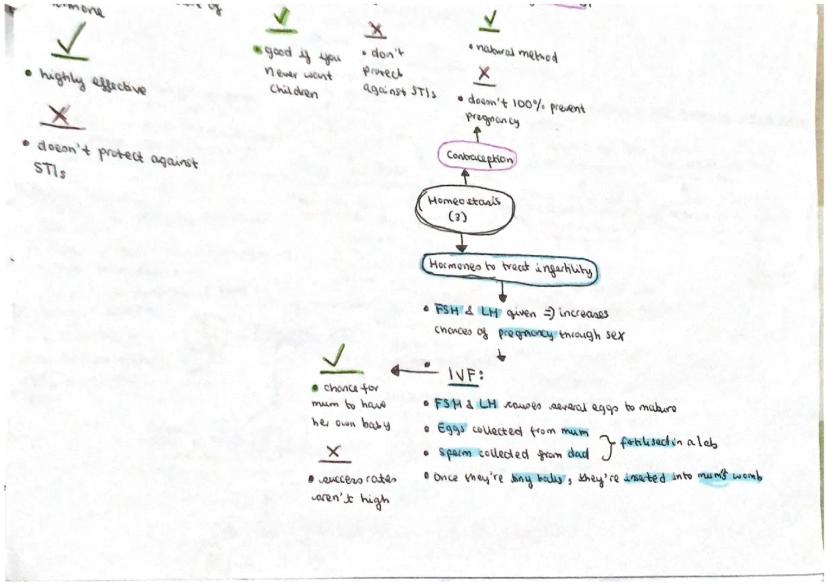 of
• highly effective
• doesn't protect against
STIs
• good if you
never want
children
• don't
protect
against STIs
• natural method
• doesn't 100% prevent
pregnancy
Contraception
Homeostasis
(3)
Hormones to treat infertility
• FSH & LH given => increases
chances of pregnancy through sex
IVF:
• FSH & LH causes several eggs to mature
• Eggs collected from mum
• Sperm collected from dad
fertilised in a lab
• Once they're tiny balls, they're inserted into mum's womb
• chance for
mum to have
her own baby
• success rates
aren't high